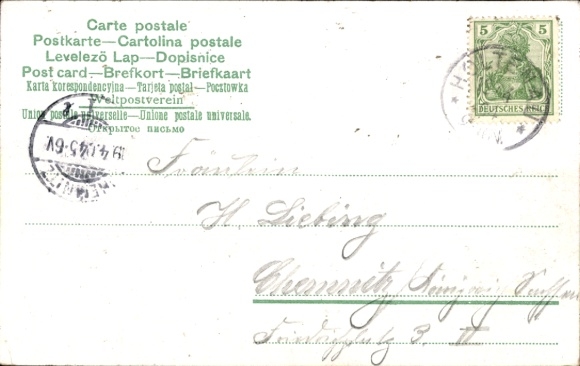 Carte postale
Postkarte—Cartolina postale
Levelező Lap—Dopisnice
Post card—Brefkort—Briefkaart
Karta korespondencyjna—Tarjeta postal—Pocztowka
Weltpostverein
Union postale universelle—Unione postale universale.
Открытое письмо
5 5
DEUTSCHES REICH
Fräulein
H. Liebing
Chemnitz
Friedrichplatz 3. II